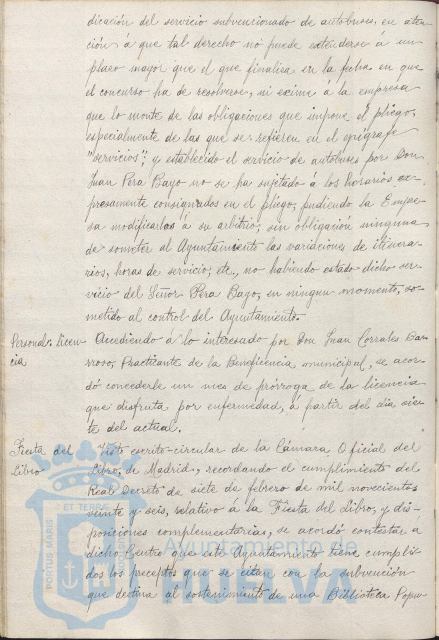 dicación del servicio subvencionado de autobuses, en aten-
ción á que tal derecho no puede extenderse á un
plazo mayor que el que finaliza en la fecha en que
el concurso ha de resolverse, ni exime á la empresa
que lo monte de las obligaciones que impone el pliego,
especialmente de las que se refieren en el epígrafe
"servicios"; y establecido el servicio de autobuses por Don
Juan Pera Bayo no se ha sujetado á los horarios ex-
presamente consignados en el pliego, pudiendo la Empre-
sa modificarlos á su arbitrio, sin obligación ninguna
de someter al Ayuntamiento las variaciones de itinera-
rios, horas de servicio, etc., no habiendo estado dicho ser-
vicio del Señor Pera Bayo, en ningun momento, so-
metido al control del Ayuntamiento.
Personal: licen-
cia
Accediendo á lo interesado por Don Juan Corrales Ba-
rroso, Practicante de la Beneficencia municipal, se acor-
dó concederle un mes de prórroga de la licencia
que disfruta por enfermedad, á partir del día sie-
te del actual.
Fiesta del
Libro
Visto escrito-circular de la Cámara Oficial del
Libro, de Madrid, recordando el cumplimiento del
Real Decreto de siete de febrero de mil novecientos
veinte y seis, relativo á la Fiesta del Libro, y dis-
posiciones complementarias, se acordó contestar a
dicho Centro que este Ayuntamiento tiene cumpli-
dos los preceptos que se citan con la subvención
que destina al sostenimiento de una Biblioteca Popu-
PORTUS MARIS
ET TERRE
Ayuntamiento de
HUELVA